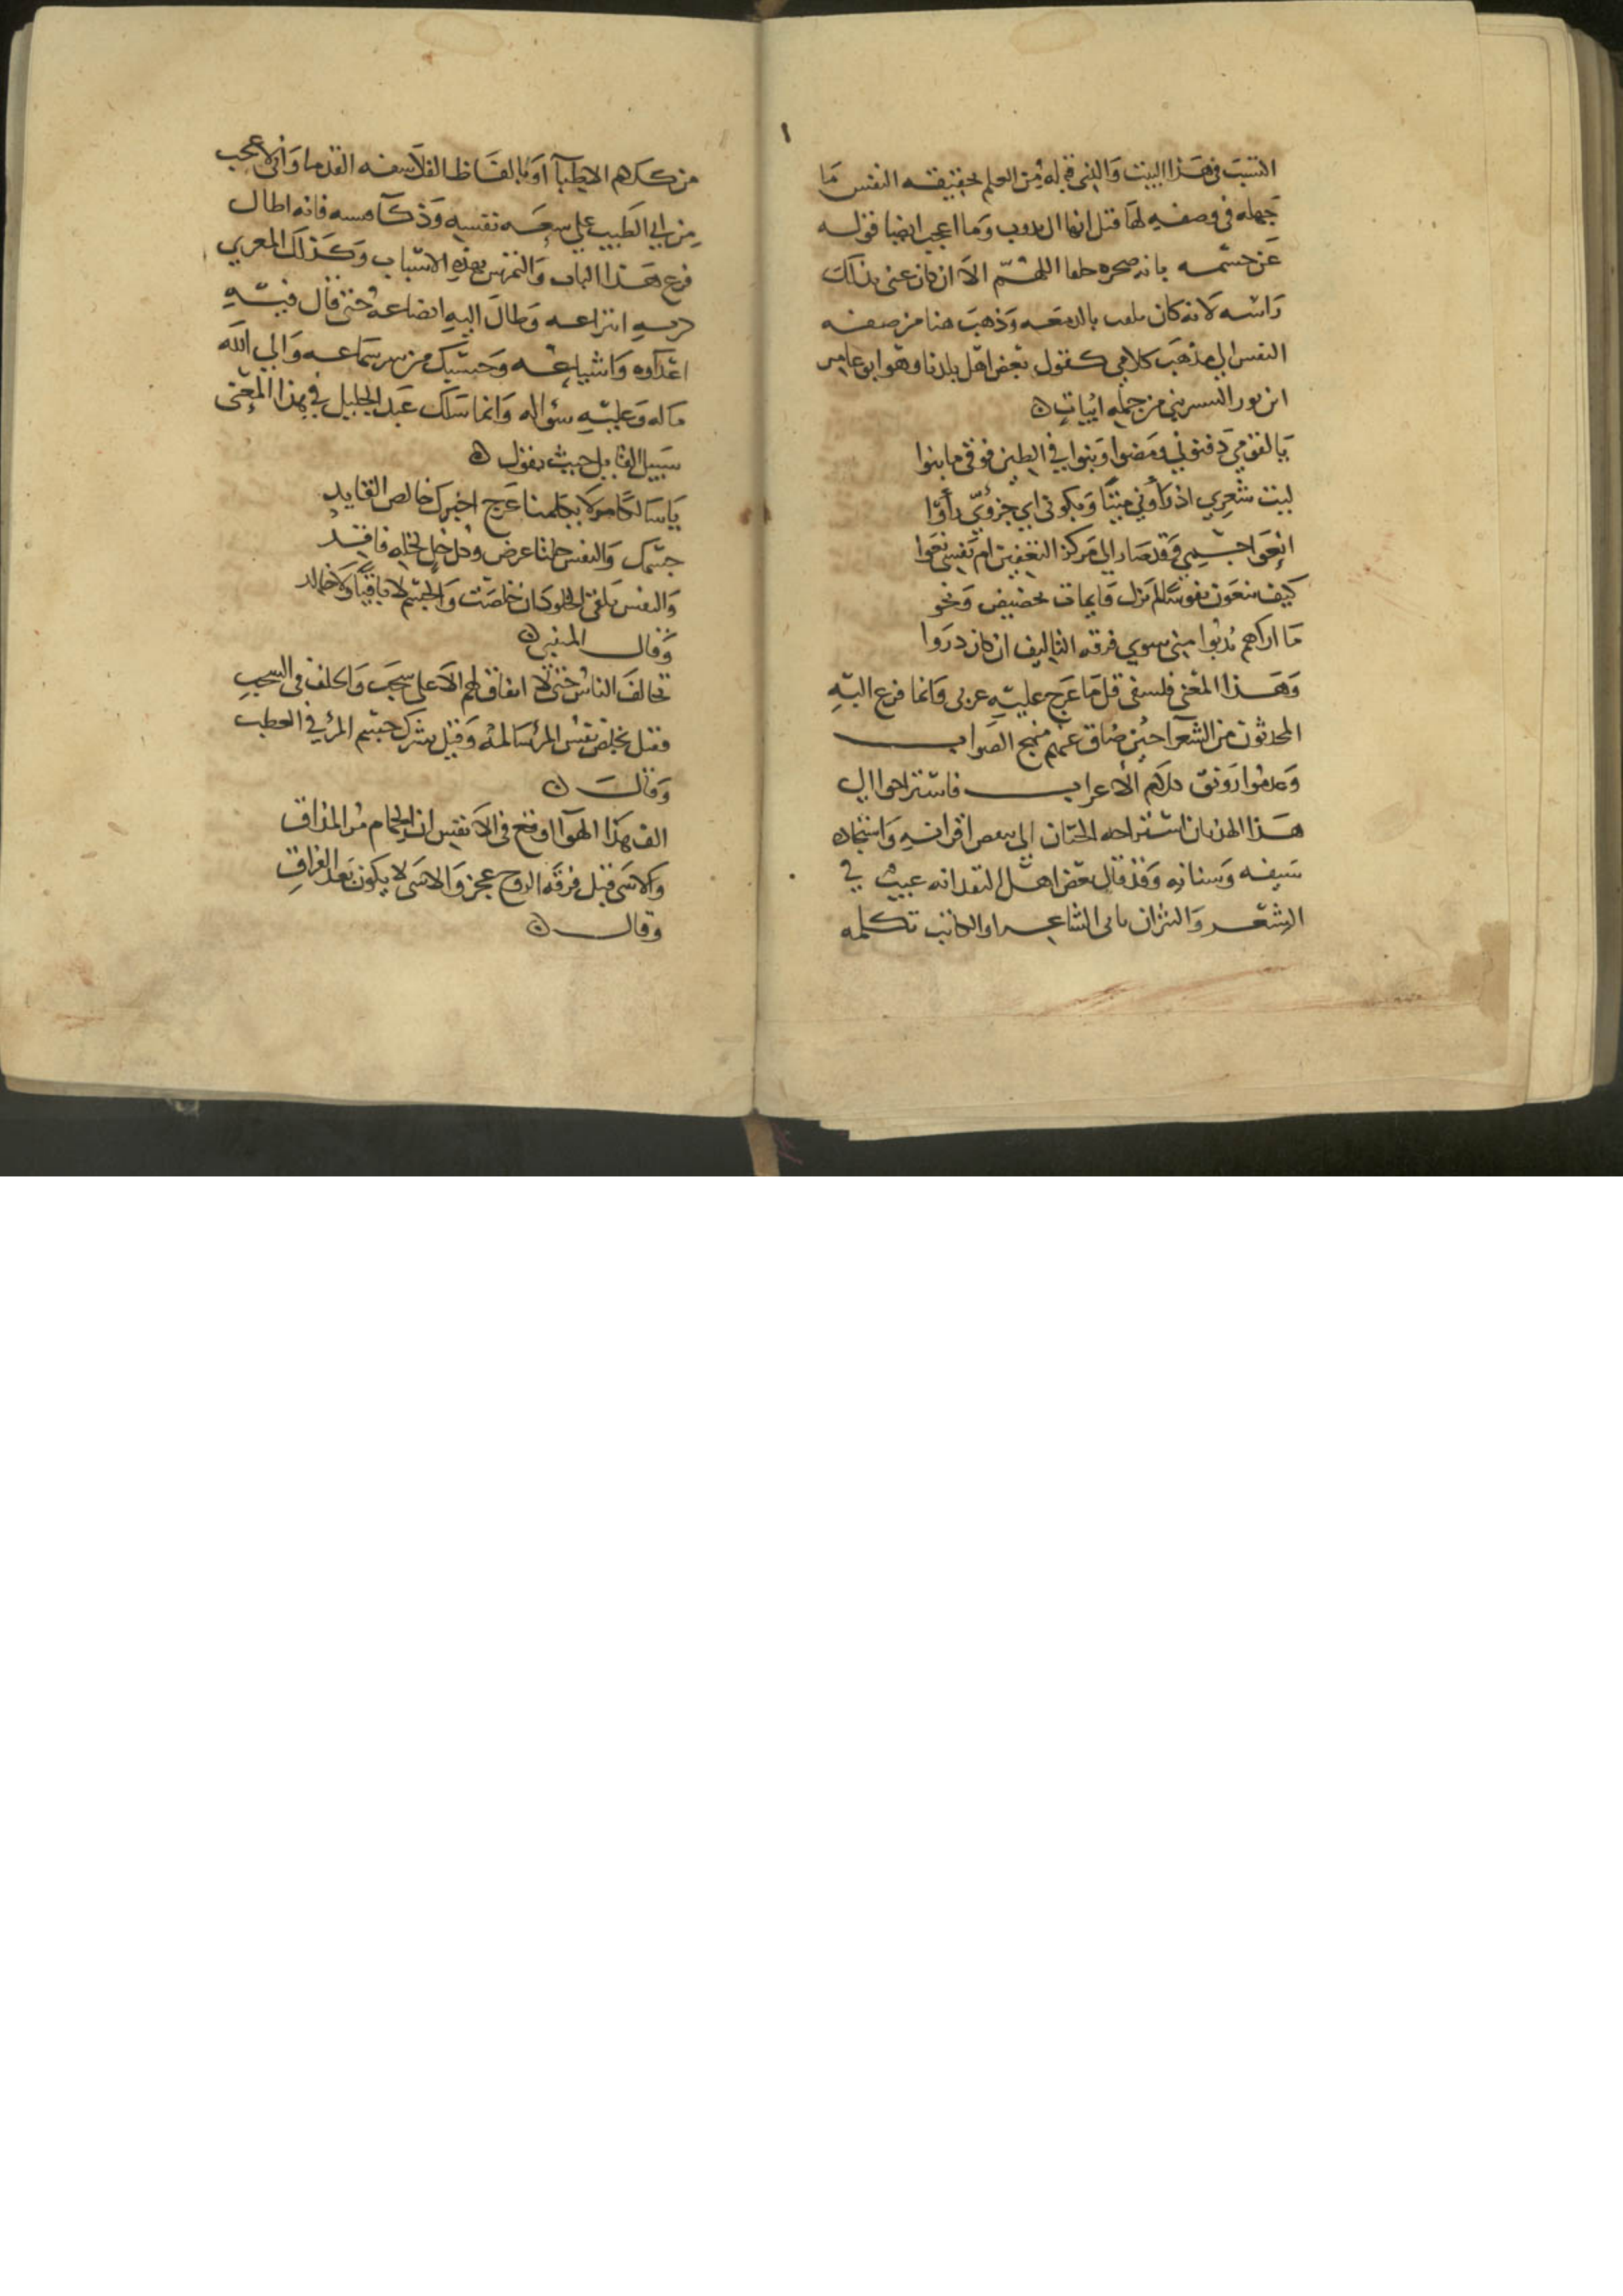 النسيب في هذا البيت والذي قبله من العلم بحقيقة النفس ما
جهله في وصفه لها قبل انها ال يذوب وما اعجب ايضا قوله
عن جسمه بانه صخره اللهم الا ان كان عنى بذلك
راسه لانه كان يلقب بالدمعه وذهب هنا من صفه
النفس الى مذهب كلامي كقول بعض اهل بلدنا وهو ابو عامر
ابن نور الشنتريني من جمله ابيات
يا لقومي دفنوني ومضوا وبنوا في الطين فوقي ما بنوا
ليت شعري اذ راوني ميتا وبكوني اي جزؤي رأوا
انعوا جسمي فقد صار الى مركز التعفين ام نفسي نعوا
كيف ينعون نفوسا لم تزل قايمات بحضيض وبجو
ما اراهم ندبوا مني سوى فرقه التاليف ان كان دروا
وهذا المعنى فلسفي قل ما عرج عليه عربي وانما فزع اليه
المحدثون من الشعرا حين ضاق عنهم منهج الصواب
وعدموا رونق كلام الاعراب فاستراحوا الى
هذا الهذيان استراحه الجبان الى بعض اقرانه واستجاده
سيفه وسنانه وقد قال بعض اهل النقد انه عيب في
الشعر والنثر ان ياتي الشاعر او الكاتب بكلمه
من كلام الاطبا او بالفاظ الفلاسفه القدما واني لاعجب
من ابي الطيب على سعه نفسه وذكا حسه فانه اطال
قرع هذا الباب والتمرس بهذه الاسباب وكذلك المعري
كثر به انتزاعه وطال اليه ايضاعه حتى قال فيه
اعداوه واشياعه وحسبك من شر سماعه والى الله
مآله وعليه سؤاله وانما سلك عبد الجليل في هذا المعنى
سبيل القايل حيث يقول
يا سالكا عرج اخبرك خالص القايد
جسمك والنفس عرض وكل خل لخله فاقد
والنفس تلقى الخلود ان خلصت والجسم لا باقيا ولا خالد
وقال المتنبي
تخالف الناس حتى لا اتفاق لهم الا على شجب والخلف في الشجب
فقيل تخلص نفس المرء سالمة وقيل تشرك جسم المرء في العطب
وقال
الف هذا الهوا اوقع في الانفس ان الحمام مر المذاق
والاسى قبل فرقه الروح عجز والاسى لا يكون بعد الفراق
وقال